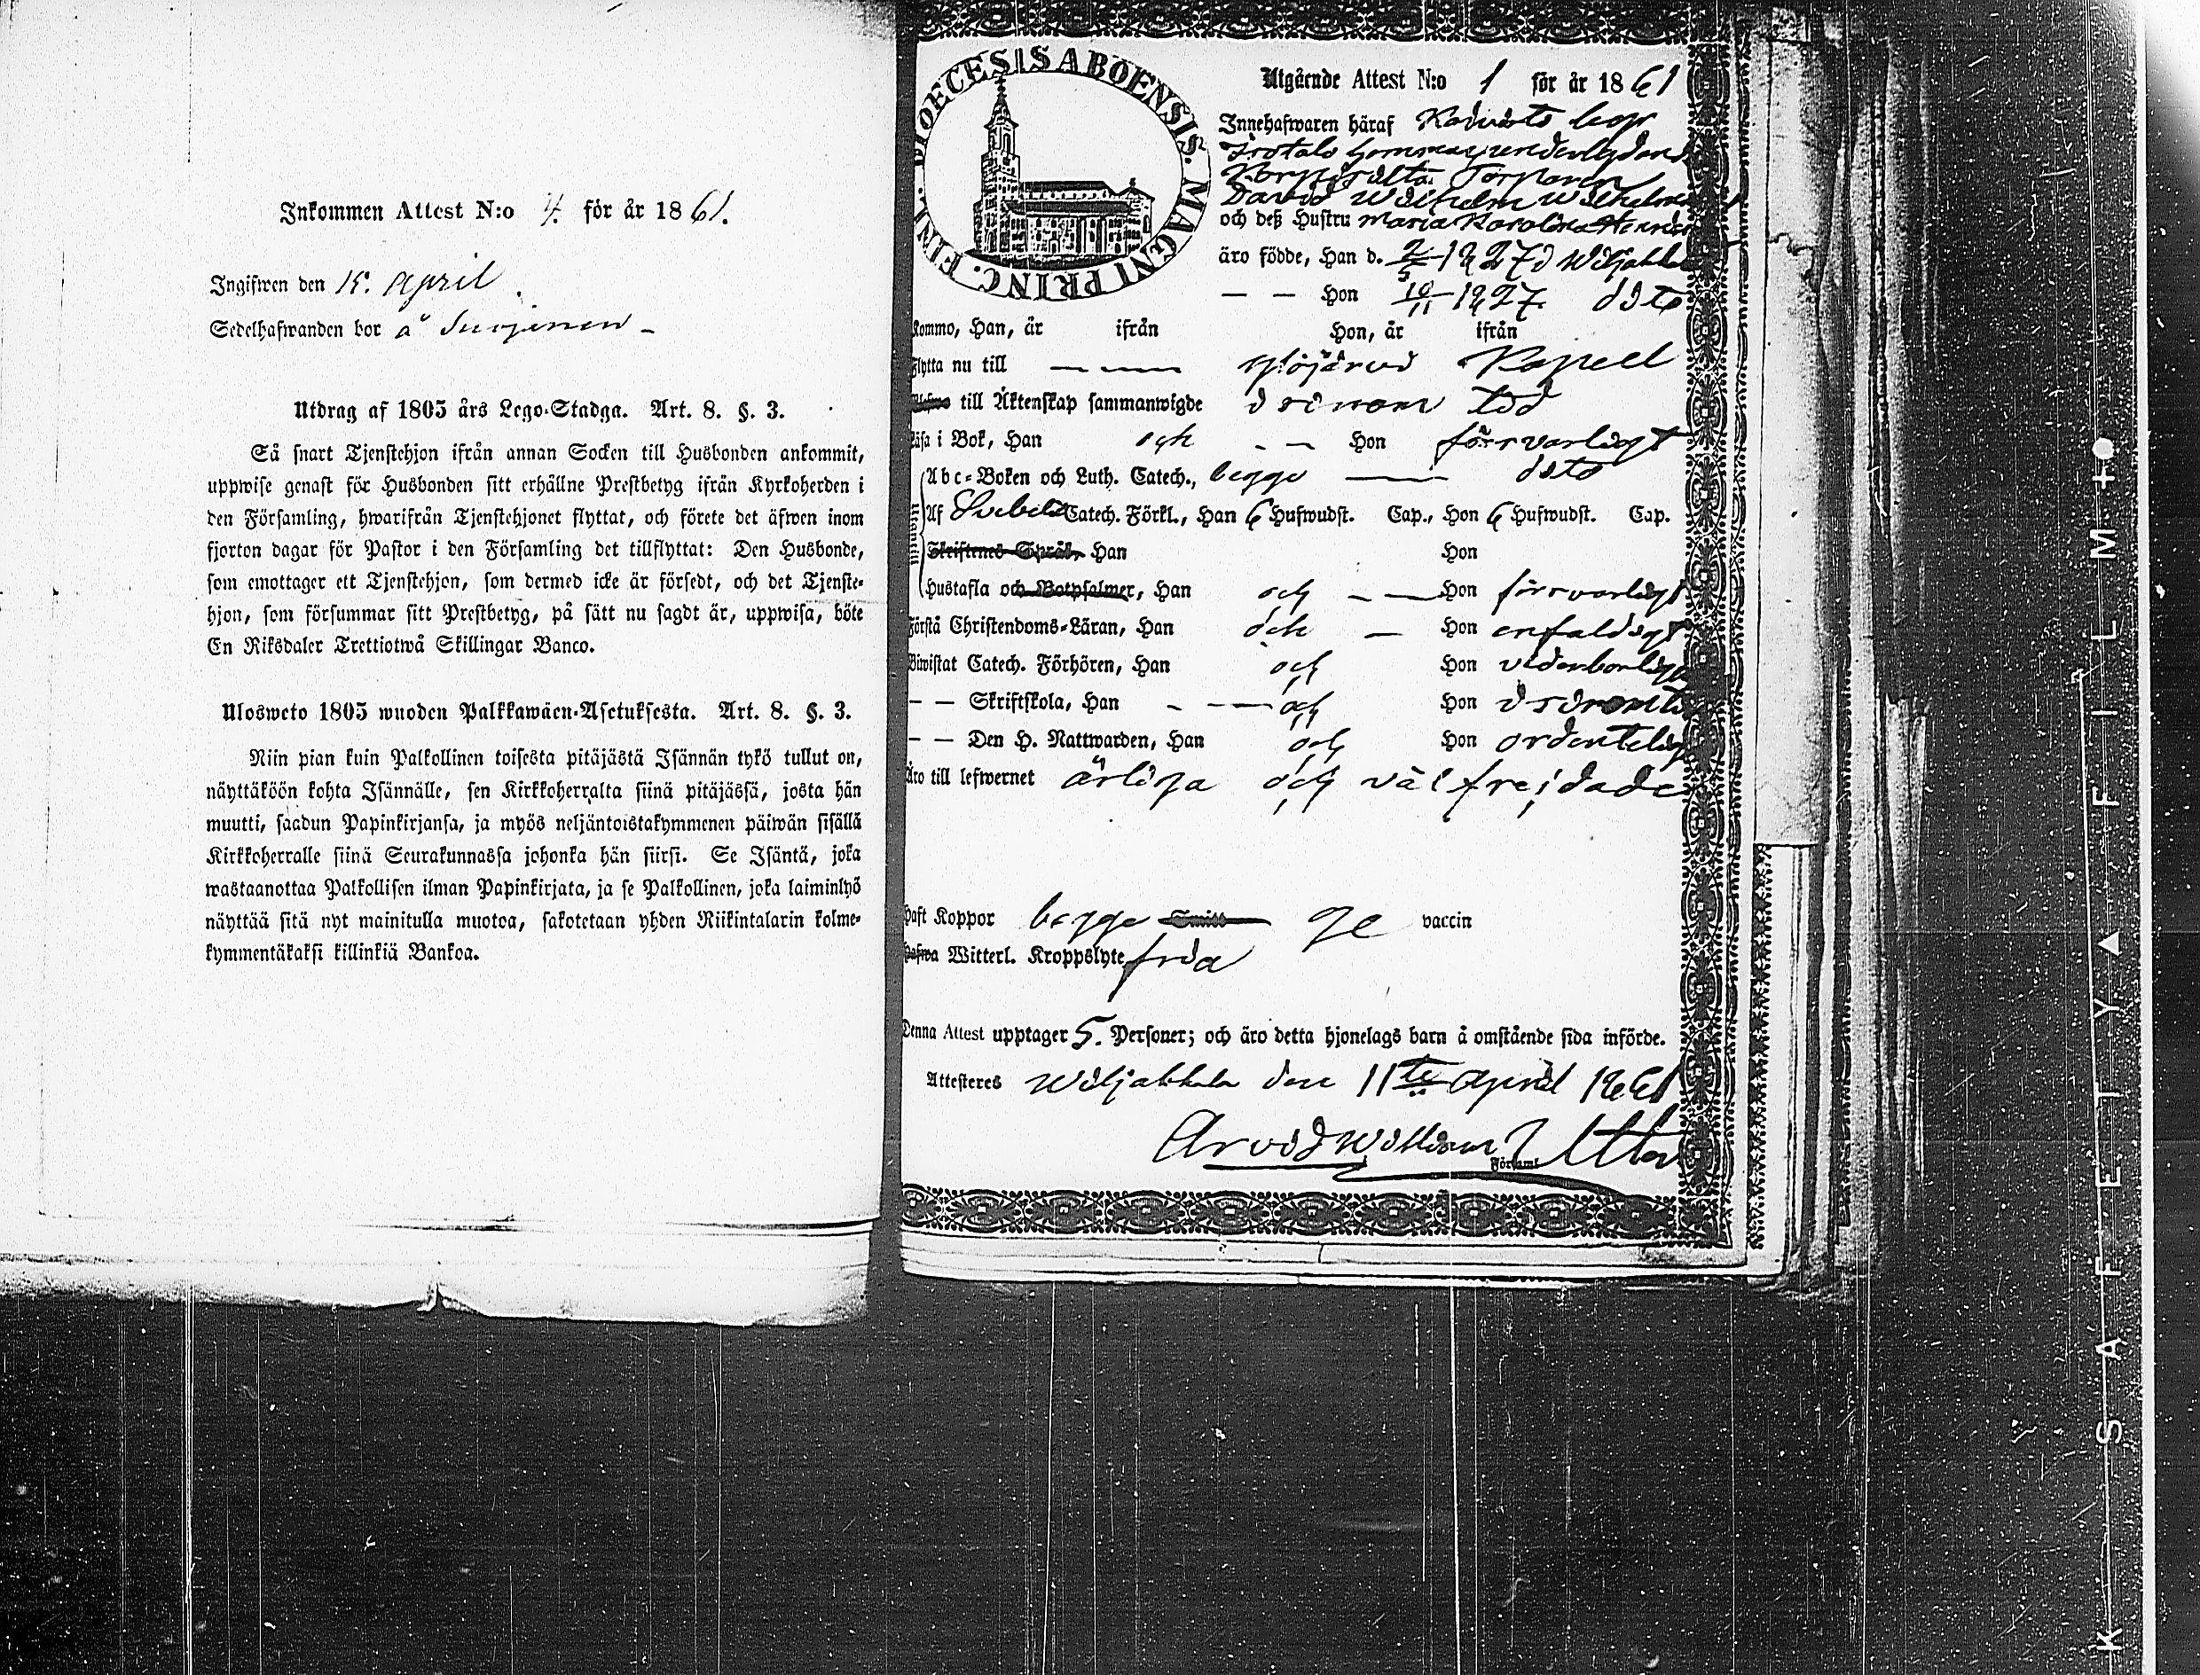 Inkommen Attest N:o 4. för år 1861.
Ingifwen den 15. April
Sedelhafwanden bor å
Utdrag af 1805 års Lego-Stadga. Art. 8. §. 3.
Så snart Tjenstehjon ifrån annan Socken till Husbonden ankommit,
uppwise genast för Husbonden sitt erhållne Prestbetyg ifrån Kyrkoherden i
den Församling, hwarifrån Tjenstehjonet flyttat, och förete det äfwen inom
fjorton dagar för Pastor i den Församling det tillflyttat: Den Husbonde,
som emottager ett Tjenstehjon, som dermed icke är försedt, och det Tjenste-
hjon, som försummar sitt Prestbetyg, på sätt nu sagdt är, uppwisa, böte
En Riksdaler Trettiotwå Skillingar Banco.
Ulosweto 1805 wuoden Palkkawäen-Asetuksesta. Art. 8. §. 3.
Niin pian kuin Palkollinen toisesta pitäjästä Isännän tykö tullut on,
näyttäköön kohta Isännälle, sen Kirkkoherralta siinä pitäjässä, josta hän
muutti, saadun Papinkirjansa, ja myös neljäntoistakymmenen päiwän sisällä
Kirkkoherralle siinä Seurakunnassa johonka hän siirsi. Se Isäntä, joka
wastaanottaa Palkollisen ilman Papinkirjata, ja se Palkollinen, joka laiminlyö
näyttää sitä nyt mainitulla muotoa, sakotetaan yhden Riikintalarin kolme-
kymmentäkaksi killinkiä Bankoa.
DIOECESIS ABOENSIS. MAGNI PRINC. FINL.
Utgående Attest N:o 1 för år 1861
Innehafwaren häraf
Torparen
David Wilhelm
och deß Hustru Maria Karolina
äro födde, Han d. 2/5 1827 i Wiljakkala
— — Hon 10/11 1827. dito
Kommo, Han, år ifrån Hon, år ifrån
Flytta nu till — — Kapell
till Äktenskap sammanwigde i sinom tid
Läsa i Bok, Han och — — Hon försvarligt
Abc-Boken och Luth. Catech., begge — dito
Af Svebelii Catech. Förkl., Han 6 Hufwudst. Cap., Hon 6 Hufwudst. Cap.
Skriftenes Språk, Han Hon
Hustafla och Botpsalmer, Han och — — Hon försvarligt
Förstå Christendoms-Läran, Han och — Hon enfaldigt
Biwistat Catech. Förhören, Han och Hon vederbörligen
— — Skriftskola, Han — — och Hon
— — Den H. Nattwarden, Han och Hon ordentelig
Äro till lefwernet ärliga och välfrejdade
Haft Koppor begge Smitt ge vaccin
Hafwa Witterl. Kroppslyte fria
Denna Attest upptager 5. Personer; och äro detta hjonelags barn å omstående sida införde.
Attesteres Wiljakkala den 11te April 1861
Arvid William
Förfaml
K SAFETY ▲ FILM +●